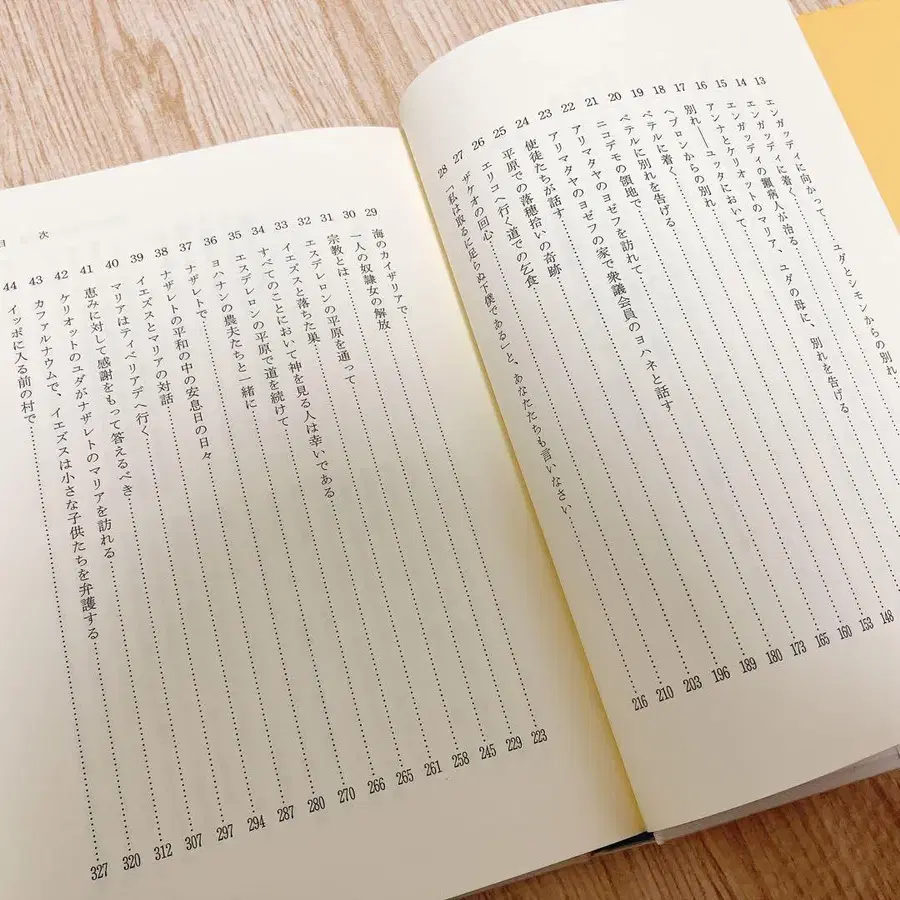 13 エンガッディに向かって、ユダとシモンからの別れ
14 エンガッディに着く
15 エンガッディの癩病人が治る
16 アンナとケリオットのマリア、ユダの母に、別れを告げる
17 別れ――ユッタにおいて
18 ヘブロンからの別れ 148
19 ベテルに着く 153
20 ベテルに別れを告げる 160
21 ニコデモの領地で 165
22 アリマタヤのヨゼフを訪れて 173
23 アリマタヤのヨゼフの家で衆議会員のヨハネと話す 180
24 使徒たちが話す 189
25 平原での落穂拾いの奇跡 196
26 エリコへ行く道での乞食 203
27 ザケオの回心 210
28 「私は取るに足らぬ下僕である」と、あなたたちも言いなさい 216
29 海のカイザリアで 223
30 一人の奴隷女の解放 229
31 宗教とは 245
32 エスデレロンの平原を通って 258
33 イエズスと落ちた巣 261
34 すべてのことにおいて神を見る人は幸いである 265
35 エスデレロンの平原で道を続けて 266
36 ヨハナンの農夫たちと一緒に 270
37 ナザレトで 280
38 ナザレトの平和の中の安息日の日々 287
39 イエズスとマリアの対話 294
40 マリアはティベリアデへ行く 297
41 恵みに対して感謝をもって答えるべき 307
42 ケリオットのユダがナザレトのマリアを訪れる 312
43 カファルナウムで、イエズスは小さな子供たちを弁護する 320
44 イッポに入る前の村で 327
目次